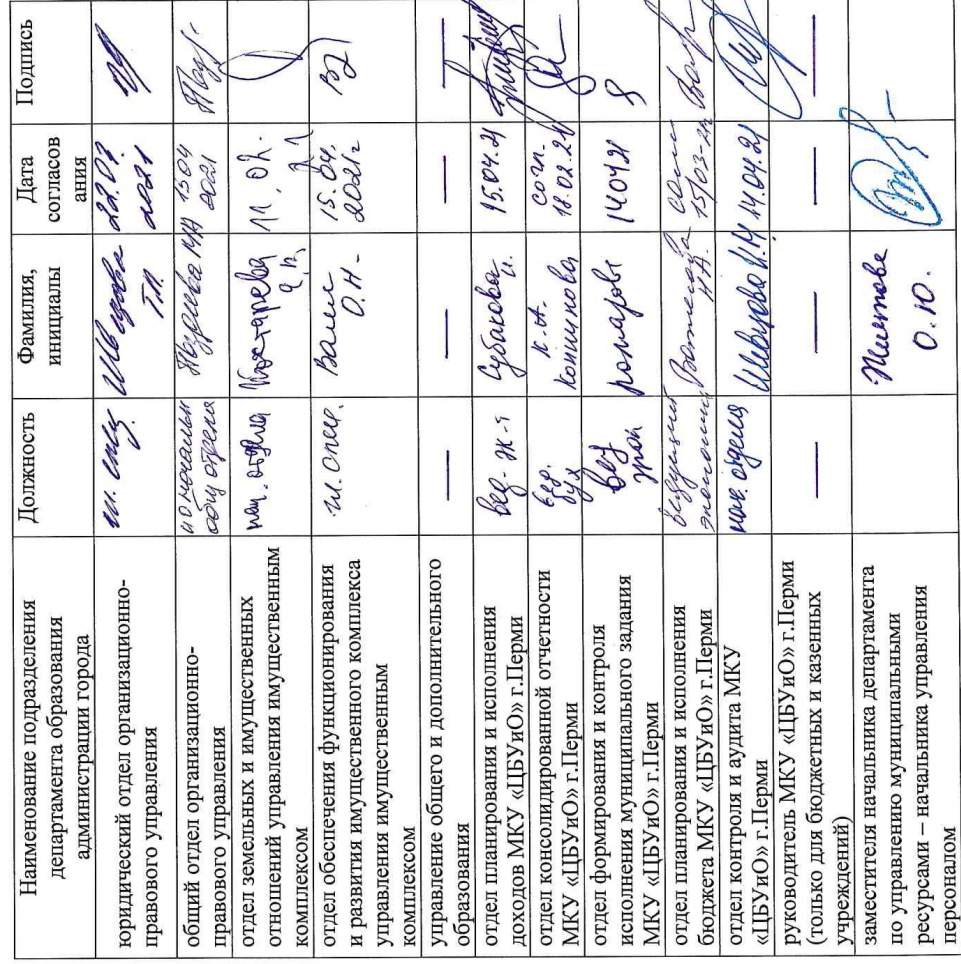 Наименование подразделения
департамента образования
администрации города
Должность
Фамилия,
инициалы
Дата
согласов
ания
Подпись
юридический отдел организационно-
правового управления
22.03.
2021
общий отдел организационно-
правового управления
15 04
2021
отдел земельных и имущественных
отношений управления имущественным
комплексом
нач. отдела
Костарева
11.02.
отдел обеспечения функционирования
и развития имущественного комплекса
управления имущественным
комплексом
гл. спец.
О.Н.
15.04.
2021г
управление общего и дополнительного
образования
—
—
—
—
отдел планирования и исполнения
доходов МКУ «ЦБУиО» г.Перми
вед. эк-т
Субакова
и.
15.04.21
отдел консолидированной отчетности
МКУ «ЦБУиО» г.Перми
вед.
бух
К.А.
согл.
18.02.21
отдел формирования и контроля
исполнения муниципального задания
МКУ «ЦБУиО» г.Перми
вед
экон
140421
отдел планирования и исполнения
бюджета МКУ «ЦБУиО» г.Перми
ведущий
экономист
Н.А.
15/03-21
отдел контроля и аудита МКУ
«ЦБУиО» г.Перми
нач. отдела
14.04.21
руководитель МКУ «ЦБУиО» г.Перми
(только для бюджетных и казенных
учреждений)
—
—
—
—
заместителя начальника департамента
по управлению муниципальными
ресурсами – начальника управления
персоналом
О.Ю.